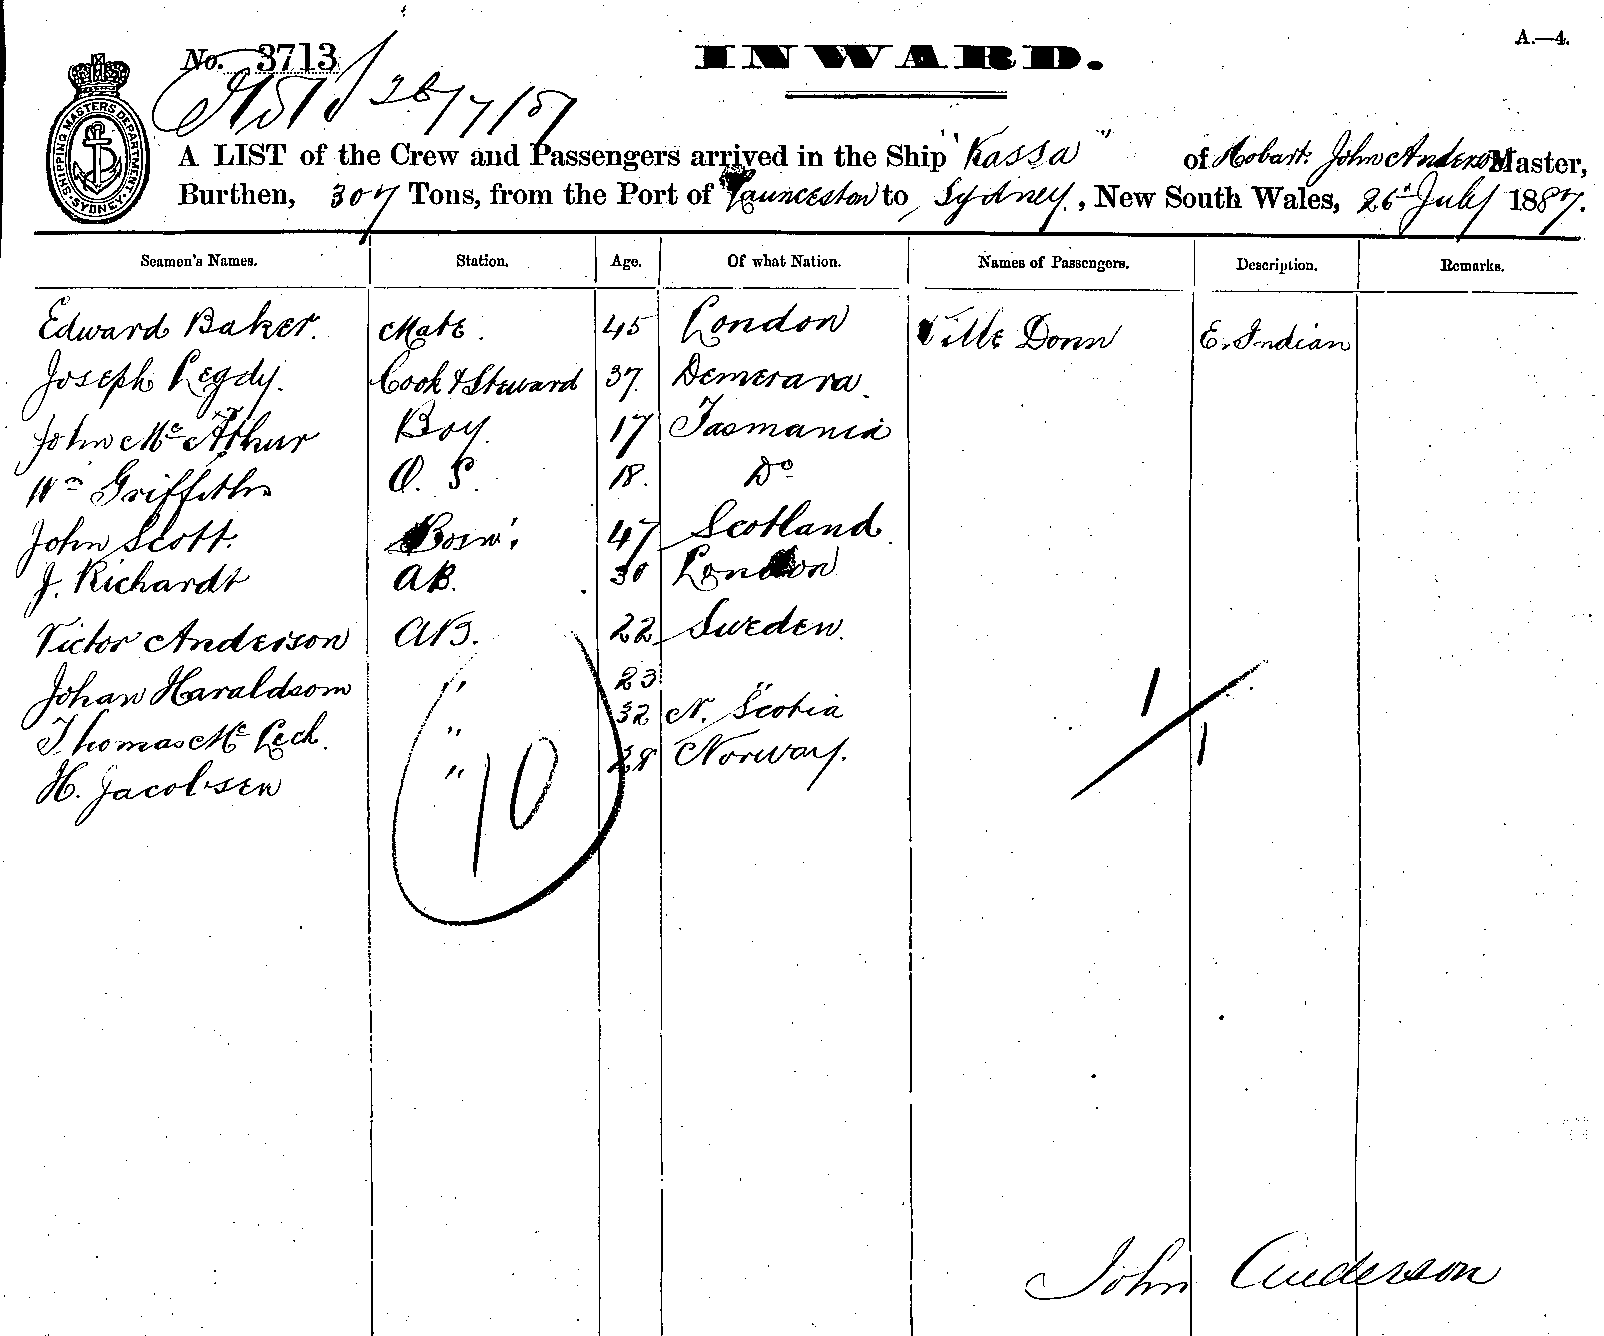 A.—4.
No. 3713
INWARD.
26/7/87
SHIPPING MASTERS DEPARTMENT SYDNEY
A LIST of the Crew and Passengers arrived in the Ship "Kassa" of Hobart. John Anderson Master,
Burthen, 307 Tons, from the Port of Launceston to Sydney, New South Wales, 26 July 1887.
Seamen's Names. Station. Age. Of what Nation. Names of Passengers. Description. Remarks.
Edward Baker. Mate. 45 London Ville Donn E. Indian
Joseph Legdy. Cook & Steward 37. Demerara.
John Mc Arthur Boy. 17 Tasmania
Wm Griffiths O. S. 18. Do
John Scott. Bosn. 47 Scotland.
J. Richardt AB. 30 London
Victor Anderson AB. 22 Sweden.
Johan Haraldsom " 23 "
Thomas Mc Lech. " 32 N. Scotia
H. Jacobsen " 28 Norway.
1
1
10
John Anderson